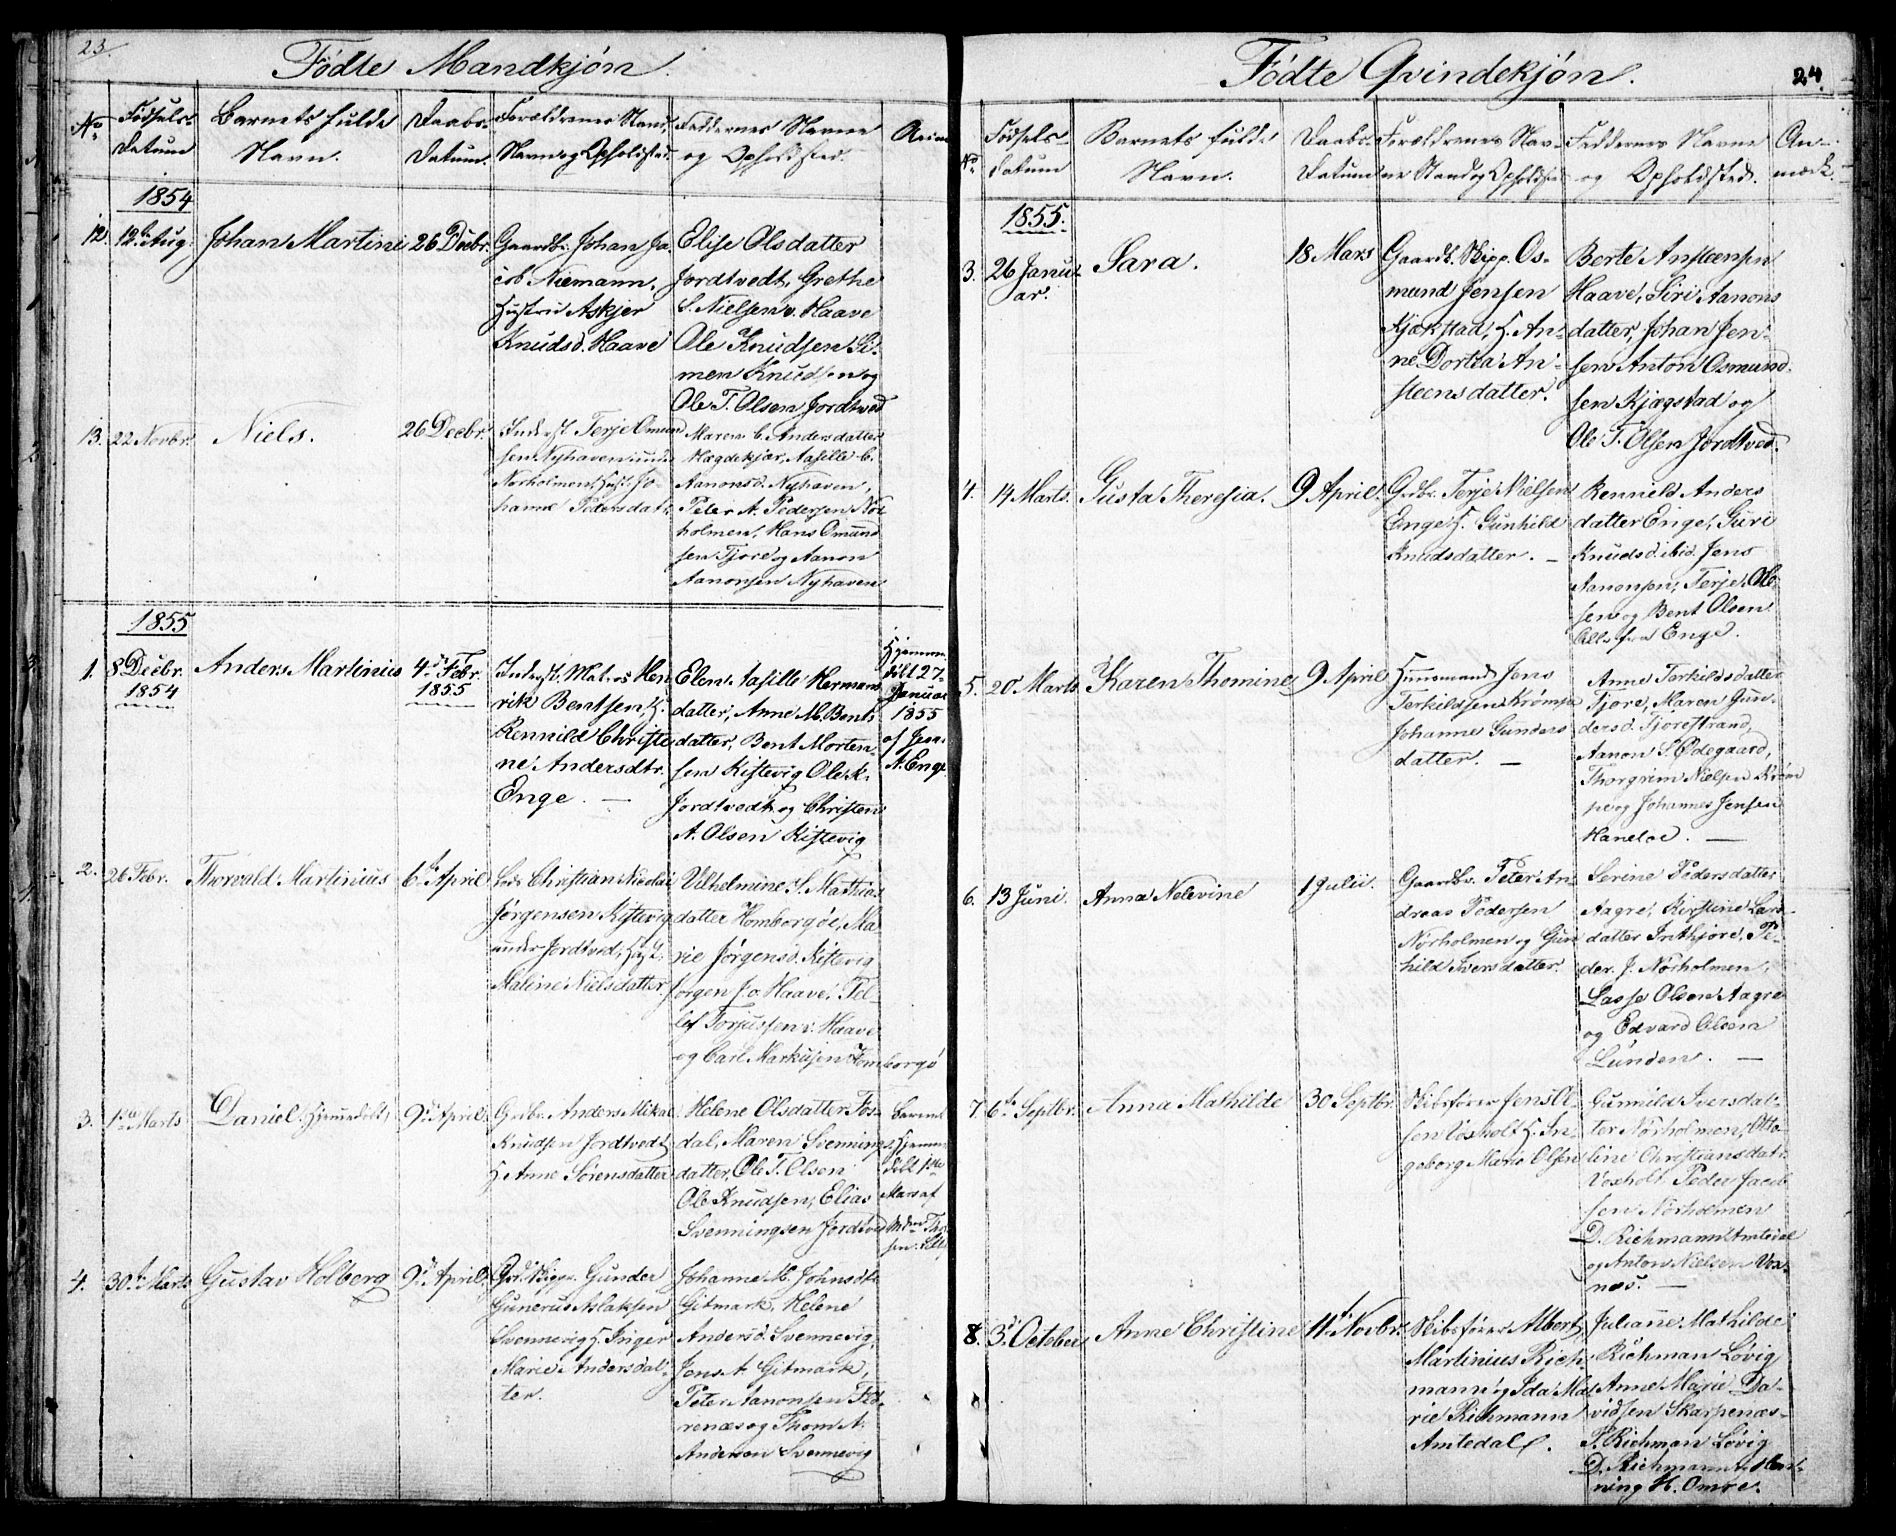 23.
Fødte Mandkjøn.
No
Fødsels-
Datum
Barnets fulde
Navn.
Daabs-
Datum.
Forældrenes Stand,
Navn og Opholdsted.
Faddernes Navne
og Opholdsted.
1854
12.
12te Aug.
Johan Martin
26 Decbr.
Gaardbr. Johan Ja-
cob Niemann,
Hustru Askjer
Knudsd. Haave
Elise Olsdatter
Jordtvedt, Grethe
S. Nielsen v. Haave
Ole Knudsen Si-
men Knudsen og
Ole T. Olsen Jordtved
13.
22 Novbr.
Niels.
26 Decbr.
Inderst Terje Omund
sen Nyhaven under
Nørholmen, Hust. Jo-
hanne Pedersdatr.
Maren C. Andersdatter
Hægdekjær, Aasille C.
Aanonsd. Nyhaven,
Peter A. Pedersen Nør
holmen, Hans Omund
sen Tjore og Aanon
Aanonsen Nyhaven
1855
1.
8 Decbr.
1854
Anders Martinius
4de Febr.
1855
Inderst, Matros Hen
rik Bentsen, H.
Rennild Christi-
ne Andersdtr.
Enge. —
Elen Aasille Herman
datter, Anne M. Bents
datter, Bent Morten-
sen Kistevig Ole K.
Jordtvedt og Christen
A. Olsen Kistevig
Hjemme
døbt 27-
Januar
1855
af Jens
A. Enge
2.
26 Febr.
Thorvald Martinius
6te April
Christian Nicolai
Jørgensen Kistevig
under Jordtved, Hust.
Maline Nielsdatter
Vilhelmine S. Mathias
datter Homborgøe, Ma
rie Jørgensd. Kistevig
Jørgen J. o. Haave, Tel-
lef Torjussen v. Haave
og Carl Markusen Homborgø
3.
1ste Marts
Daniel (hjemmedøbt)
9de April
Gdbr. Anders Mikal
Knudsen Jordtvedt
H. Anne Sørensdatter
Helene Olsdatter Fos-
dal, Maren Svennings
datter, Ole T. Olsen
Ole Knudsen, Elias
Svenningsen Jordtved
Barnet
Hjemme
døbt 1ste
Mars af
4.
30te Marts
Gustav Holberg
9de April
Grd. Skippr. Gunder
Gunerus Aslaksen
Svennevig H. Inger
Marie Andersdat-
ter.
Johanne M. Johnsdtr
Gitmark, Helene
Andersd. Svennevig,
Jens A Gitmark,
Peter Aanonsen Fid-
renæs og Thom A.
Andersen Svennevig
Fødte Qvindekjøn.
24.
No
Fødsels-
Datum
Barnets fulde
Navn.
Daabs-
Datum
Forældrenes Nav-
ne Stand og Opholdsted
Faddernes Navne
og Opholdsted.
An-
mærk.
1855.
3.
26 Janu-
ar.
Sara.
18 Mars
Gaardb. Skipp. Os-
mund Jensen
Kjøgstad, H. An-
ne Dortea An-
steensdatter.
Berte Ansteensen
Haave, Siri Aanons
datter, Johan Jen-
sen Anton Osmund-
sen Kjøgstad og
Ole T. Olsen Jordtved.
4.
14 Marts.
Gusta Theresia.
9 April.
Grdbr. Terje Nielsen
Enge H. Gunhild
Knudsdatter. —
Rennild Anders
datter Enge, Guri
Knudsd. ibid. Jens
Aanonsen, Terje Ole-
sen og Bent Olsen
Alle fra Enge.
5.
20 Marts
Karen Thomine
9 April
Huusmand Jens
Terkildsen Krømpe
Johanne Gunders
datter. —
Anne Terkildsdatter
Tjore, Maren Gun-
dersd. Tjorestrand,
Aanon S. Ødegaard,
Thorgrim Nielsen Krøm
pe og Johannes Jensen
Haneloe. —
6.
13 Juni.
Anna Nelevine
1 Julii.
Gaardbr. Peter An
dreas Pedersen
Nørholmen og Gun
hild Iversdatter.
Serine Pedersdatter
Aagre, Kirstine Lars-
datter Inthjore, Pe-
der J. Nørholmen,
Lasse Olsen Aagre
og Edvard Olsen
Lunden. —
7.
6te Septbr.
Anna Mathilde
30 Septbr.
Skibsfører Jens Ol-
sen Voxholt H. In-
geborg Marie Olsen
Gunnild Iversdat-
ter Nørholmen, Otto
line Christiansdatr.
Voxholt. Peder Jacob
sen Nørholmen
D. Richmann Amtedal
og Anton Nielsen Vox-
næs. —
8.
3die October
Anne Christine
11te Novbr.
Skibsfører Albert
Martinius Rich-
mann og Ida Ma-
rie Richmann
Amtedal.
Juliane Mathilde
Richman Løvig
Anne Marie Da-
vidsen Skarpenæs-
P. Richman Løvig
D. Richmann, Hen-
ning H. Omre.